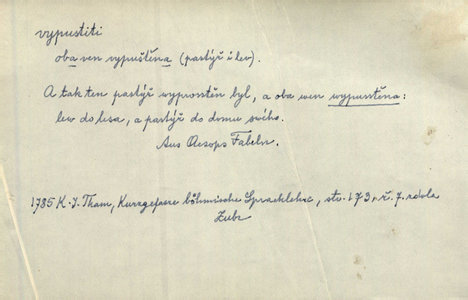 vypustiti
oba ven vypuštěna (pastýř i lev).
A tak ten pastýř wyprontěn byl, a oba wen wypuntěna:
lew do lesa, a pastýř do domu swého.
Aus Aesops Fabeln.
1785 K. I. Tham, Kurzgefasse böhmische Sprachlehre, str. 173, ř. 7. zdola
Zubr